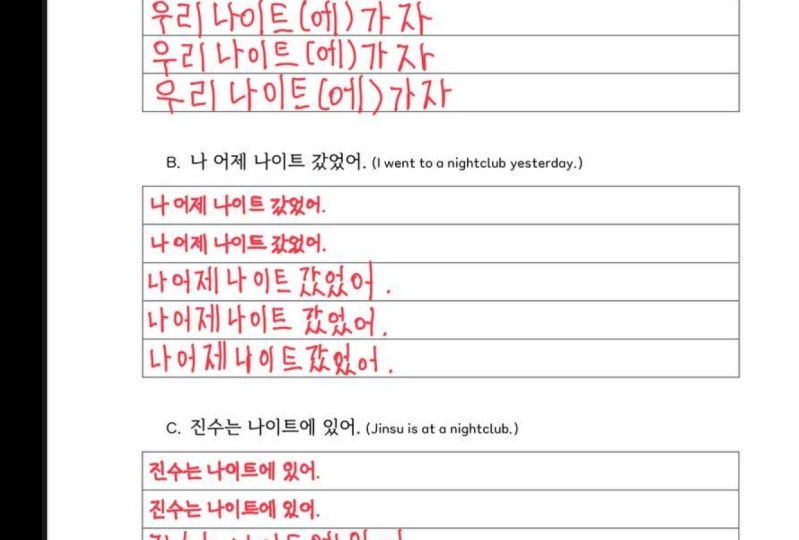 우리 나이트(에)가자
우리 나이트(에)가자
우리 나이트(에)가자
B. 나 어제 나이트 갔었어. (I went to a nightclub yesterday.)
나 어제 나이트 갔었어.
나 어제 나이트 갔었어.
나어제 나이트 갔었어.
나어제 나이트 갔었어.
나어제 나이트갔었어.
C. 진수는 나이트에 있어. (Jinsu is at a nightclub.)
진수는 나이트에 있어.
진수는 나이트에 있어.